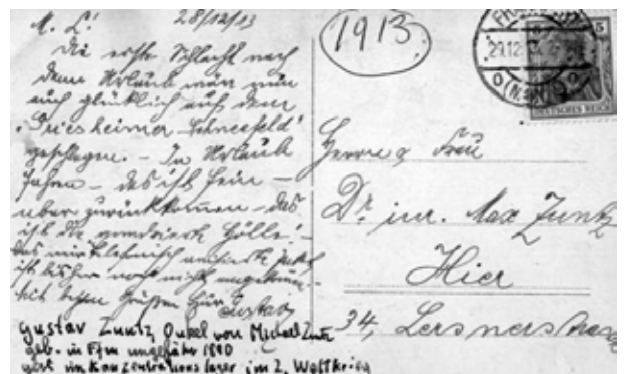 M. L.! 28/12/13
Die erste Schlacht nach
dem Urlaub wär nun
auch glücklich auf dem
"Griesheimer Schneefeld"
geschlagen. – In Urlaub
fahren – das ist fein –
aber zurückkommen – das
ist die Hölle! –
Das
ist bisher noch nicht angekommen.
Mit besten Grüßen Euer Gustav
Gustav Zuntz, Onkel von Michael Zuntz
geb. in Ffm ungefähr 1890
gest. im Konzentrationslager im 2. Weltkrieg
1913
29.12
5
DEUTSCHES REICH
Herrn & Frau
Dr. iur. Max Zuntz
Hier
34, Lersnerstrasse